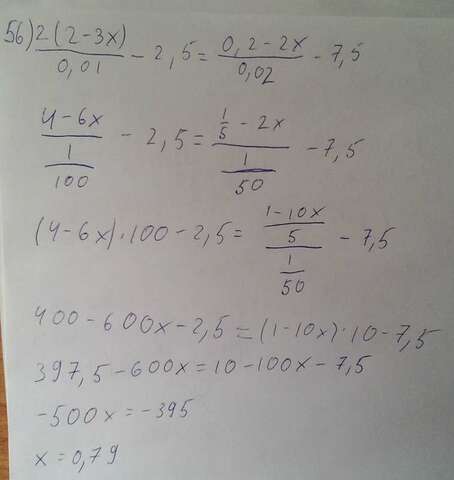 56) 2(2-3x)/0,01 - 2,5 = 0,2-2x/0,02 - 7,5
4-6x/(1/100) - 2,5 = (1/5 - 2x)/(1/50) - 7,5
(4-6x)·100 - 2,5 = ((1-10x)/5)/(1/50) - 7,5
400-600x-2,5=(1-10x)·10-7,5
397,5-600x=10-100x-7,5
-500x=-395
x=0,79